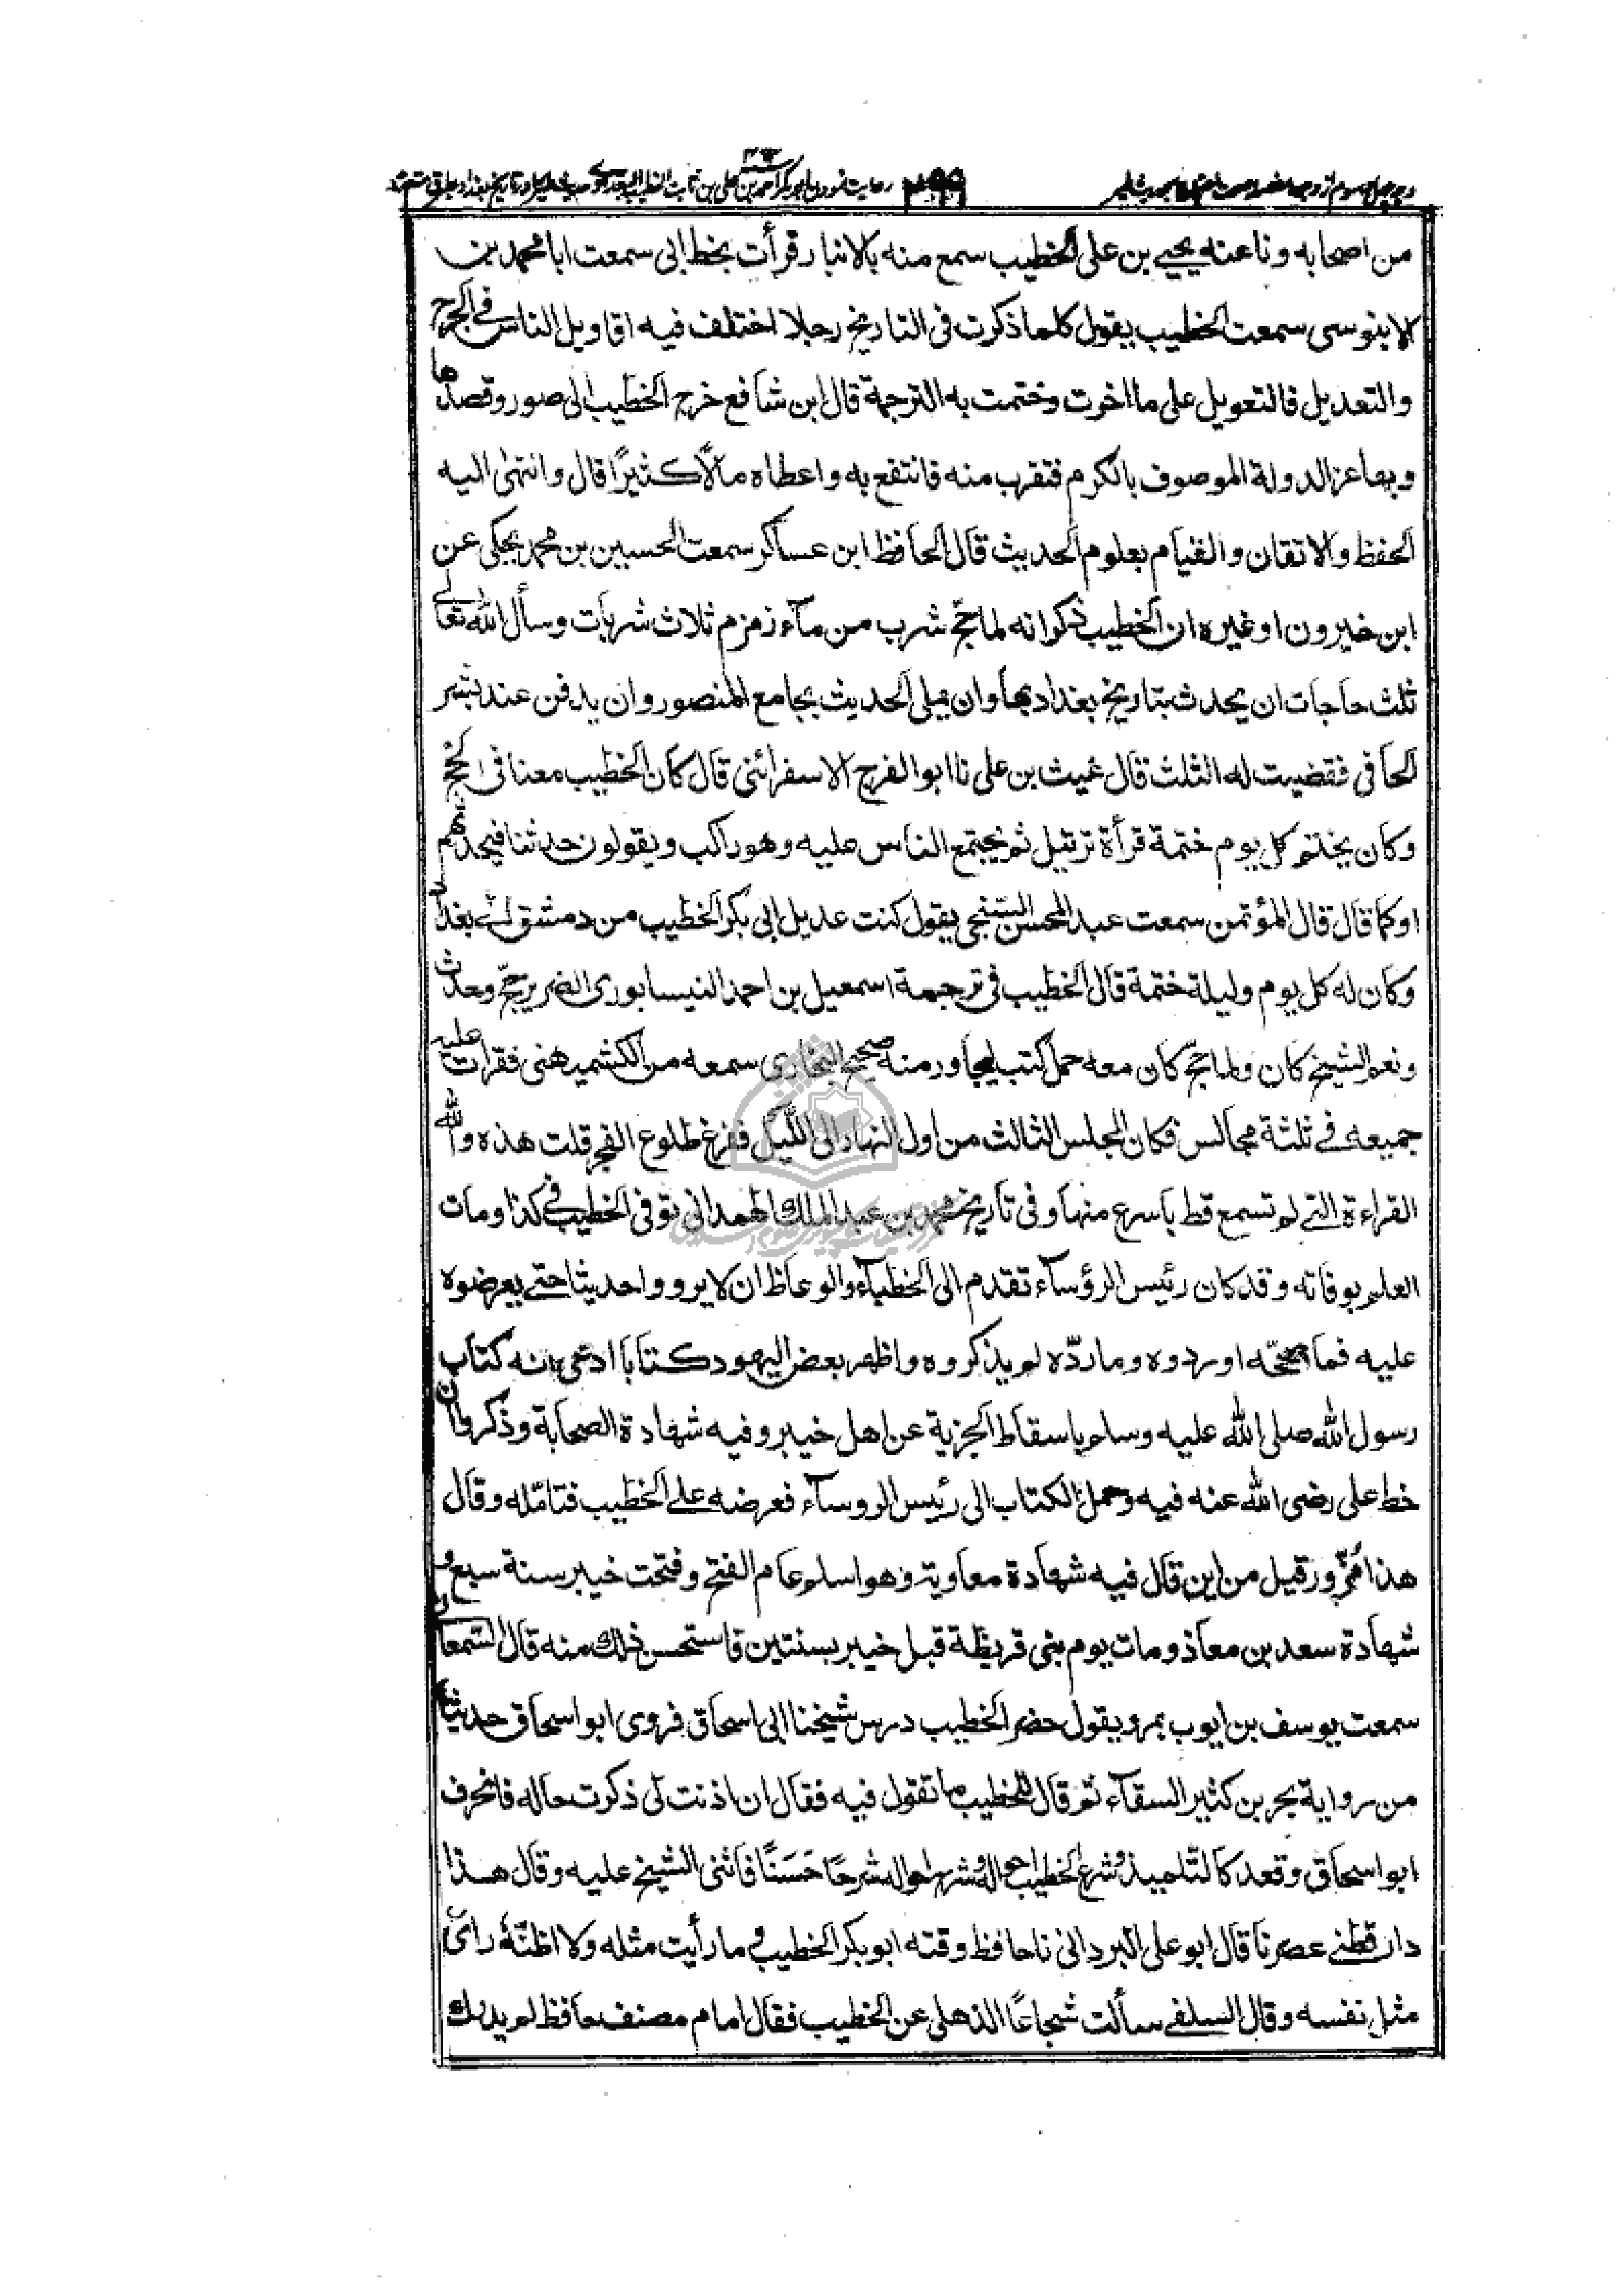 من اصحابه ونا عنه يحيى بن على الخطيب سمع منه بالانبار قرأت بخط ابى سمعت ابا محمد بن
الابنوسى سمعت الخطيب يقول كلما ذكرت فى التاريخ رجلا اختلف فيه اقاويل الناس فى الجرح
والتعديل فالتعويل على ما اخرت وختمت به الترجمة قال ابن شافع خرج الخطيب الى صور وقصدها
وبها عز الدولة الموصوف بالكرم فتقرب منه فانتفع به واعطاه مالًا كثيرًا قال وانتهى اليه
الحفظ والاتقان والقيام بعلوم الحديث قال الحافظ ابن عساكر سمعت الحسين بن محمد يحكى عن
ابن خيرون او غيره ان الخطيب ذكر انه لما حجّ شرب من مآء زمزم ثلاث شربات وسأل الله تعالے
ثلث حاجات ان يحدث بتاريخ بغداد بها وان يملى الحديث بجامع المنصور وان يدفن عند بشر
الحافى فقضيت له الثلث قال غيث بن على نا ابو الفرج الاسفرائنى قال كان الخطيب معنا فى الحج
وكان يختم كل يوم ختمة قرأة ترتيل ثم يجتمع الناس عليه وهو راكب ويقولون حدثنا فيحدثهم
او كما قال قال المؤتمن سمعت عبد المحسن السّنجى يقول كنت عديل ابى بكر الخطيب من دمشق الے بغداد
وكان له كل يوم وليلة ختمة قال الخطيب فى ترجمة اسمعيل بن احمد النيسابورى الضرير حجّ وحدث
ونعم الشيخ كان ولما حجّ كان معه حمل كتب ليجاور منه صحيح البخارى سمعه من الكشميهنى فقرات عليه
جميعه فے ثلثة مجالس فكان المجلس الثالث من اول النهار الى الليل ففرغ طلوع الفجر قلت هذه والله
القراءة التے لم تسمع قط باسرع منها وفى تاريخ محمد بن عبد الملك الهمدانى توفى الخطيب فے كذا ومات
العلم بوفاته وقد كان رئيس الرؤسآء تقدم الى الخطبآء والوعاظ ان لا يرووا حديثا حتے يعرضوه
عليه فما صححّه اوردوه وما ردّه لم يذكروه واظهر بعض اليهود كتابا ادعى بانه كتاب
رسول الله صلى الله عليه وسلم باسقاط الجزية عن اهل خيبر وفيه شهادة الصحابة وذكروا ان
خط على رضى الله عنه فيه وحمل الكتاب الى رئيس الروسآء فعرضه على الخطيب فتامّله وقال
هذا مُزّور قيل من اين قال فيه شهادة معاوية وهو اسلم عام الفتح وفتحت خيبر سنة سبع و
شهادة سعد بن معاذ ومات يوم بنى قريظة قبل خيبر بسنتين فاستحسن ذلك منه قال السّمعانى
سمعت يوسف بن ايوب بمرو يقول حضر الخطيب درس شيخنا ابى اسحاق فروى ابو اسحاق حديثا
من رواية بحر بن كثير السقآء ثم قال للخطيب ما تقول فيه فقال ان اذنت لى ذكرت حاله فانحرف
ابو اسحاق وقعد كالتّلميذ وشرع الخطيب وشرح احواله شرحًا حَسَنًا فاثنى الشيخ عليه وقال هذا
دارقطنے عصرنا قال ابو على البردانى نا حافظ وقته ابو بكر الخطيب وما رأيت مثله ولا اظنّهُ راى
مثل نفسه وقال السلفے سألت شجاعًا الذهلى عن الخطيب فقال امام مصنف حافظ لم يدرك